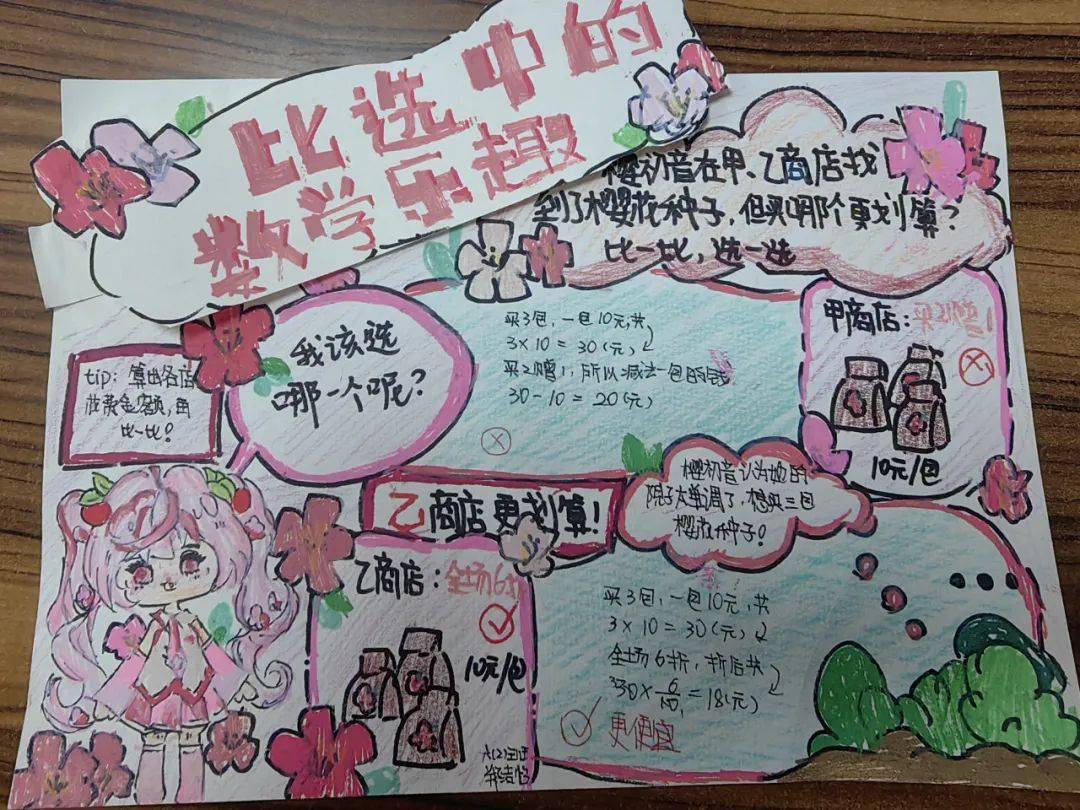 比选中的
数学乐趣
樱初音在甲、乙商店找
到了樱花种子,但买哪个更划算?
比一比,选一选
tip:算出各店
所黄金额,再
比一比!
我该选
哪一个呢?
买3包,一包10元,共
3×10=30(元)
买2赠1,所以减去一包的钱
30-10=20(元)
甲商店:买2赠1
10元/包
樱初音认为她的
院子太单调了,想买三包
樱花种子!
乙商店更划算!
乙商店:全场6折
10元/包
买3包,一包10元,共
3×10=30(元)
全场6折,折后共
30×6/10=18(元)
更便宜